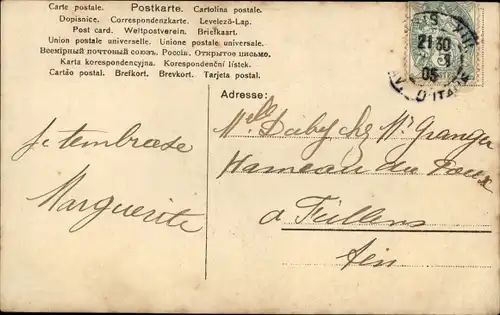 Carte postale. Postkarte. Cartolina postale.
Dopisnice. Correspondenzkarte. Levelező-Lap.
Post card. Weltpostverein. Briefkaart.
Union postale universelle. Unione postale universale.
Всемірный почтовый союзъ. Россія. Открытое письмо.
Karta korespondencyjna. Korespondenční lístek.
Cartão postal. Brefkort. Brevkort. Tarjeta postal.
21 30
05
D'ITA
Adresse:
Melle Daby chez Mr Granger
Hameau du
a Fullens
Ain
je tembrase
Marguerite